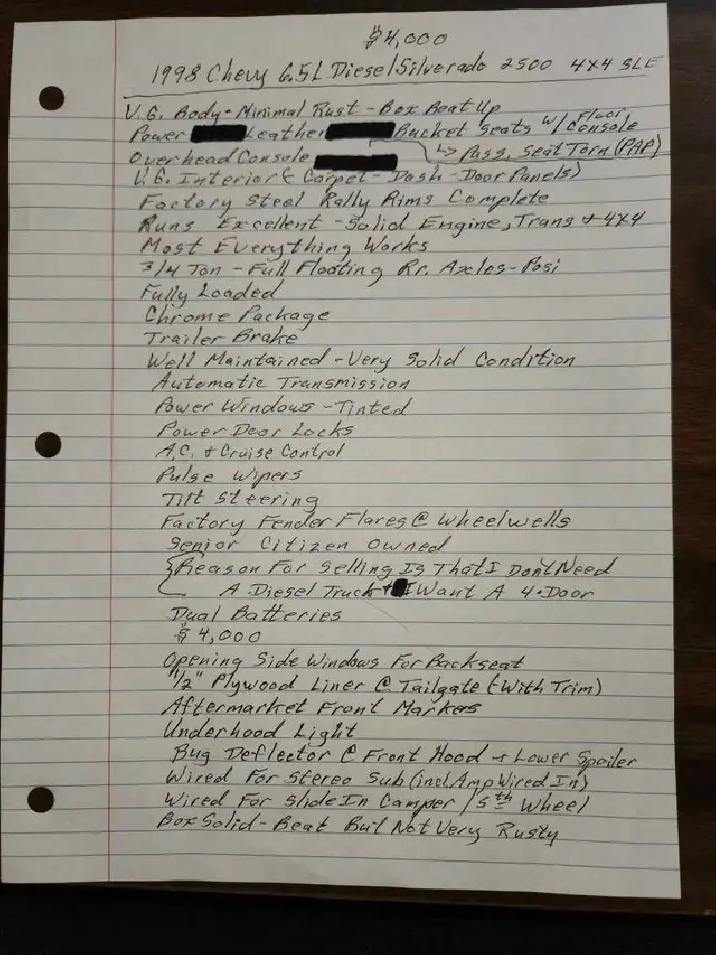 $4,000
1998 Chevy 6.5L Diesel Silverado 2500 4X4 SLE
V.G. Body - Minimal Rust - Box Beat Up
Power Leather Bucket Seats w/ Floor Console
Overhead Console ↳ Pass. Seat Torn (PAP)
V.G. Interior (Carpet - Dash - Door Panels)
Factory Steel Rally Rims Complete
Runs Excellent - Solid Engine, Trans + 4X4
Most Everything Works
3/4 Ton - Full Floating Rr. Axles - Posi
Fully Loaded
Chrome Package
Trailer Brake
Well Maintained - Very Solid Condition
Automatic Transmission
Power Windows - Tinted
Power Door Locks
A.C. + Cruise Control
Pulse Wipers
Tilt Steering
Factory Fender Flares @ Wheelwells
Senior Citizen Owned
Reason For Selling Is That I Don't Need
A Diesel Truck + I Want A 4-Door
Dual Batteries
$4,000
Opening Side Windows For Backseat
1/2" Plywood Liner @ Tailgate (With Trim)
Aftermarket Front Markers
Underhood Light
Bug Deflector @ Front Hood + Lower Spoiler
Wired For Stereo Sub (incl. Amp Wired In)
Wired For Slide In Camper / 5th Wheel
Box Solid - Beat But Not Very Rusty